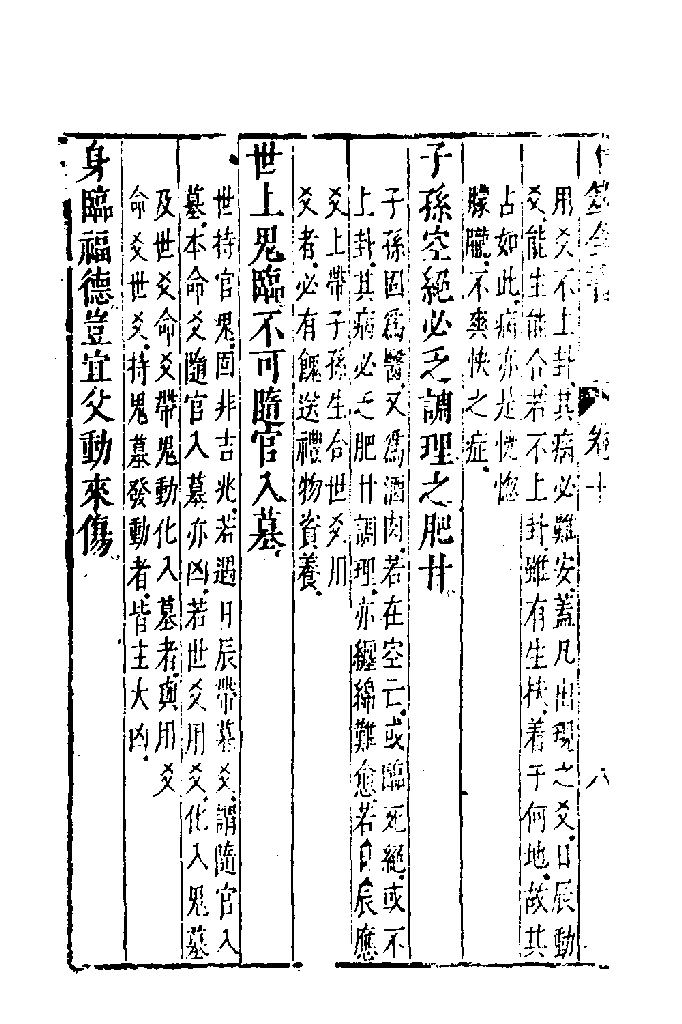 卜筮全書 卷十 八
用爻不上卦其病必難安蓋凡出現之爻日辰動
爻能生能合若不上卦雖有生扶着于何地故其
占如此病亦是恍惚
朦朧不爽快之症
子孫空絕必乏調理之肥甘
子孫固爲醫又爲酒肉若在空亡或臨死絕或不
上卦其病必乏肥甘調理亦纏綿難愈若日辰應
爻上帶子孫生合世爻用
爻者必有餽送禮物資養
世上鬼臨不可隨官入墓
世持官鬼固非吉兆若遇日辰帶墓爻謂隨官入
墓本命爻隨官入墓亦凶若世爻用爻化入鬼墓
及世爻命爻帶鬼動化入墓者與用爻
命爻世爻持鬼墓發動者皆主大凶
身臨福德豈宜父動來傷